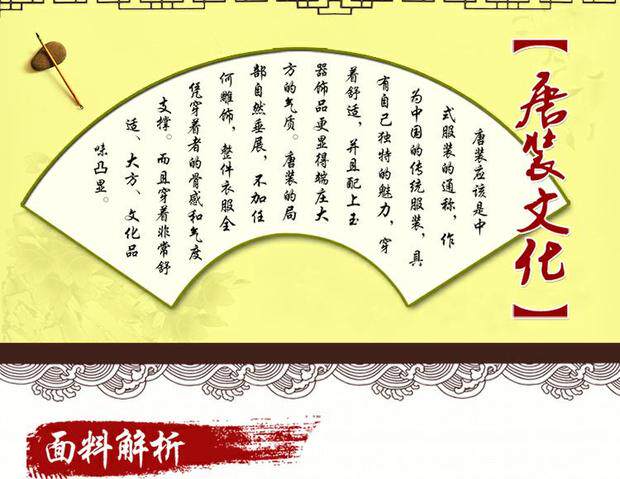 【唐装文化】
唐装应该是中
式服装的通称，作
为中国的传统服装，具
有自己独特的魅力，穿
着舒适，并且配上玉
器饰品更显得端庄大
方的气质。唐装的局
部自然垂展，不加任
何雕饰，整件衣服全
凭穿着者的骨感和气度
支撑。而且穿着非常舒
适、大方、文化品
味凸显。
面料解析